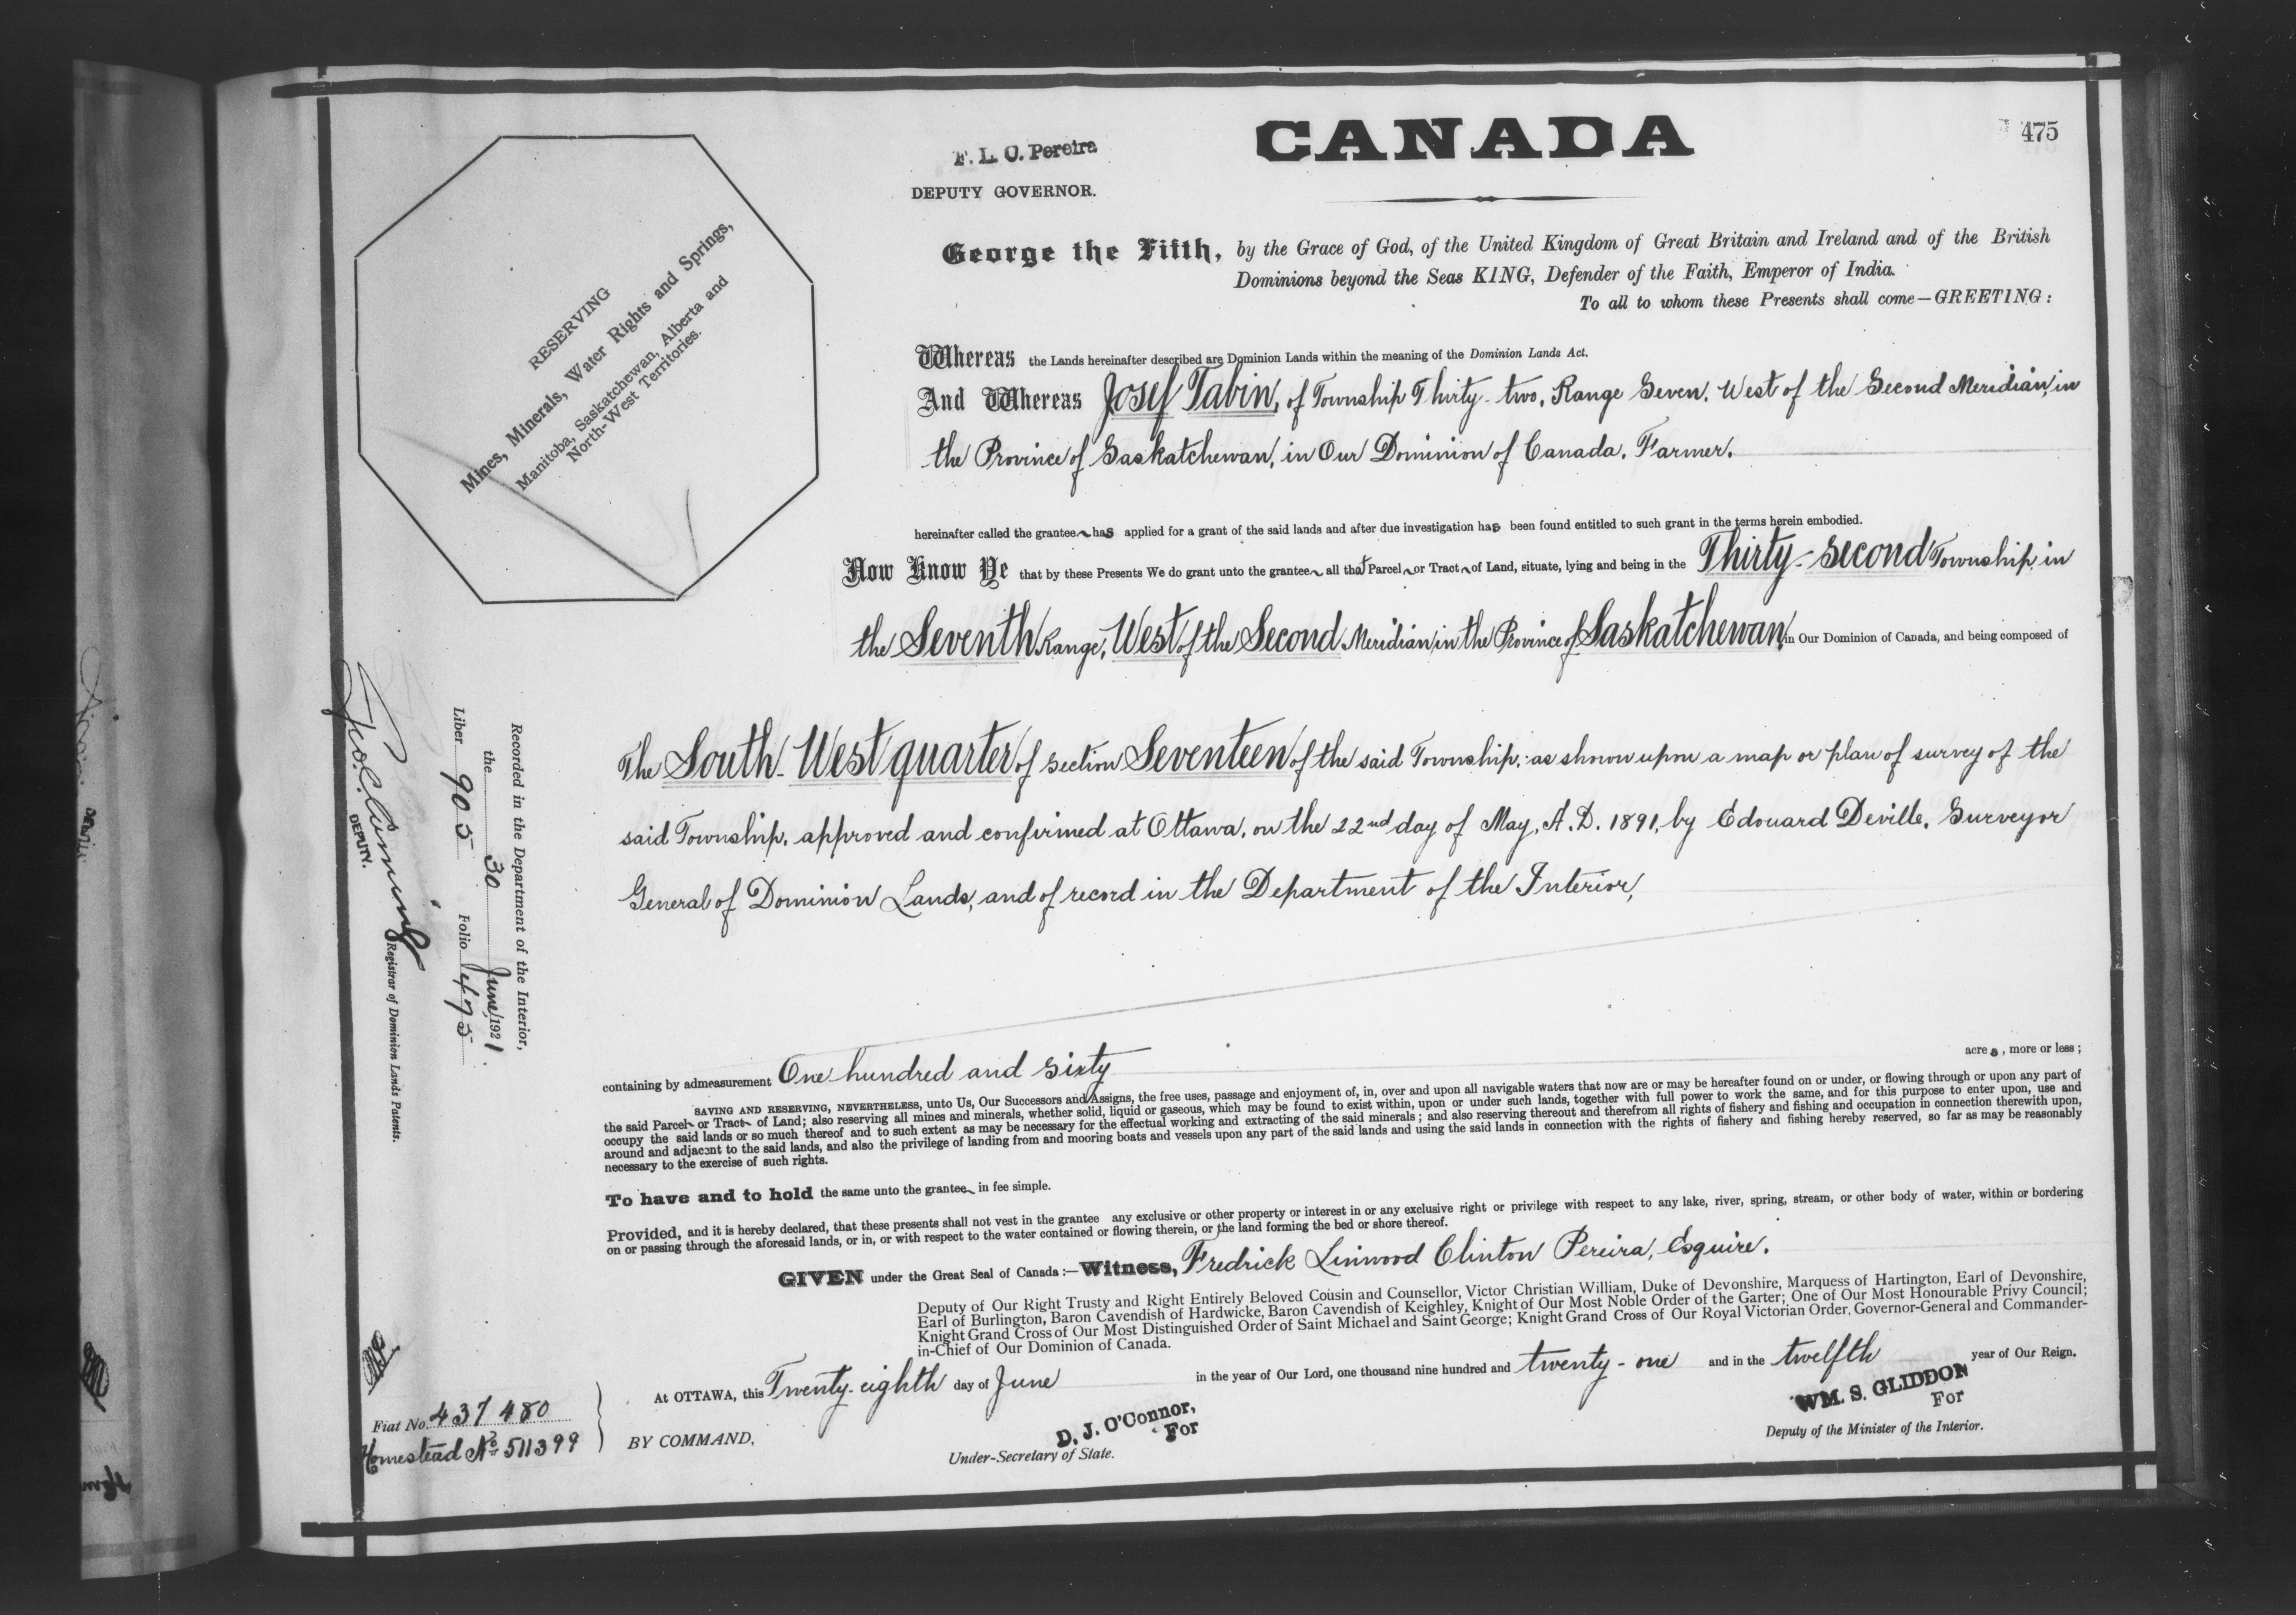 CANADA
475
F. L. C. Pereira
DEPUTY GOVERNOR.
RESERVING
Mines, Minerals, Water Rights and Springs,
Manitoba, Saskatchewan, Alberta and
North-West Territories.
George the Fifth, by the Grace of God, of the United Kingdom of Great Britain and Ireland and of the British
Dominions beyond the Seas KING, Defender of the Faith, Emperor of India.
To all to whom these Presents shall come—GREETING:
Whereas the Lands hereinafter described are Dominion Lands within the meaning of the Dominion Lands Act.
And Whereas Josef Tabin, of Township Thirty-two, Range Seven, West of the Second Meridian, in
the Province of Saskatchewan, in Our Dominion of Canada, Farmer.
hereinafter called the grantee has applied for a grant of the said lands and after due investigation has been found entitled to such grant in the terms herein embodied.
Now Know Ye that by these Presents We do grant unto the grantee all that Parcel or Tract of Land, situate, lying and being in the Thirty-Second Township, in
the Seventh Range, West of the Second Meridian, in the Province of Saskatchewan, in Our Dominion of Canada, and being composed of
The South-West quarter of Section Seventeen of the said Township, as shown upon a map or plan of survey of the
said Township, approved and confirmed at Ottawa, on the 22nd day of May, A.D. 1891, by Edouard Deville, Surveyor
General of Dominion Lands, and of record in the Department of the Interior,
containing by admeasurement One hundred and sixty acres, more or less;
SAVING AND RESERVING, NEVERTHELESS, unto Us, Our Successors and Assigns, the free uses, passage and enjoyment of, in, over and upon all navigable waters that now are or may be hereafter found on or under, or flowing through or upon any part of
the said Parcel or Tract of Land; also reserving all mines and minerals, whether solid, liquid or gaseous, which may be found to exist within, upon or under such lands, together with full power to work the same, and for this purpose to enter upon, use and
occupy the said lands or so much thereof and to such extent as may be necessary for the effectual working and extracting of the said minerals; and also reserving thereout and therefrom all rights of fishery and fishing and occupation in connection therewith upon,
around and adjacent to the said lands, and also the privilege of landing from and mooring boats and vessels upon any part of the said lands and using the said lands in connection with the rights of fishery and fishing hereby reserved, so far as may be reasonably
necessary to the exercise of such rights.
To have and to hold the same unto the grantee in fee simple.
Provided, and it is hereby declared, that these presents shall not vest in the grantee any exclusive or other property or interest in or any exclusive right or privilege with respect to any lake, river, spring, stream, or other body of water, within or bordering
on or passing through the aforesaid lands, or in, or with respect to the water contained or flowing therein, or the land forming the bed or shore thereof.
GIVEN under the Great Seal of Canada:—Witness, Fredrick Linwood Clinton Pereira, Esquire.
Deputy of Our Right Trusty and Right Entirely Beloved Cousin and Counsellor, Victor Christian William, Duke of Devonshire, Marquess of Hartington, Earl of Devonshire,
Earl of Burlington, Baron Cavendish of Hardwicke, Baron Cavendish of Keighley, Knight of Our Most Noble Order of the Garter; One of Our Most Honourable Privy Council;
Knight Grand Cross of Our Most Distinguished Order of Saint Michael and Saint George; Knight Grand Cross of Our Royal Victorian Order, Governor-General and Commander-
in-Chief of Our Dominion of Canada.
At OTTAWA, this Twenty-eighth day of June in the year of Our Lord, one thousand nine hundred and twenty-one and in the twelfth year of Our Reign.
BY COMMAND,
D. J. O'Connor,
For
Under-Secretary of State.
WM. S. GLIDDON
For
Deputy of the Minister of the Interior.
Recorded in the Department of the Interior,
the 30 June, 1921.
Liber 905 Folio 475
DEPUTY. Registrar of Dominion Lands Patents.
Fiat No. 437480
Homestead No. 511399